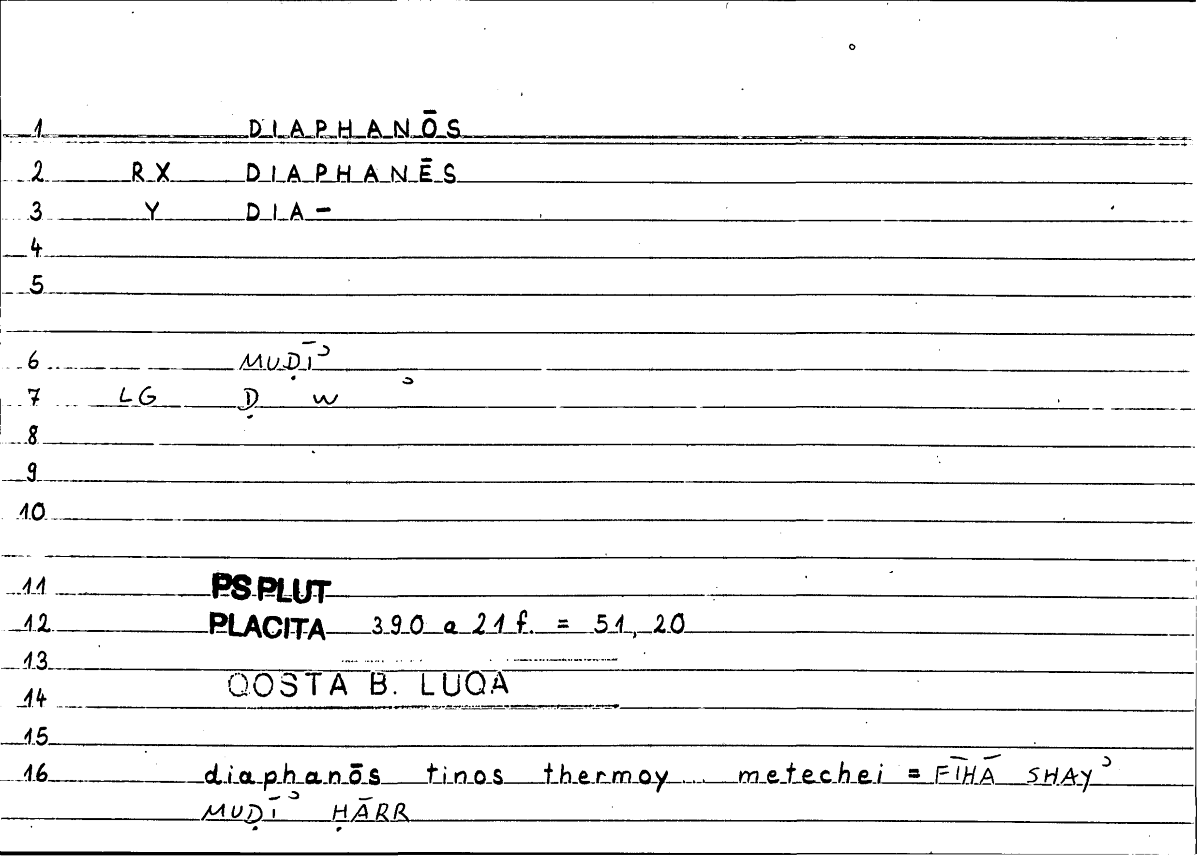 1 DIAPHANŌS
2 RX DIAPHANĒS
3 Y DIA-
4
5
6 MUḌĪʾ
7 LG Ḍ W ʾ
8
9
10
11 PS.PLUT
12 PLACITA 390 a 21 f. = 51, 20
13
14 QOSTA B. LUQA
15
16 diaphanōs tinos thermoy... metechei = FĪHĀ SHAYʾ
MUḌĪʾ ḤĀRR